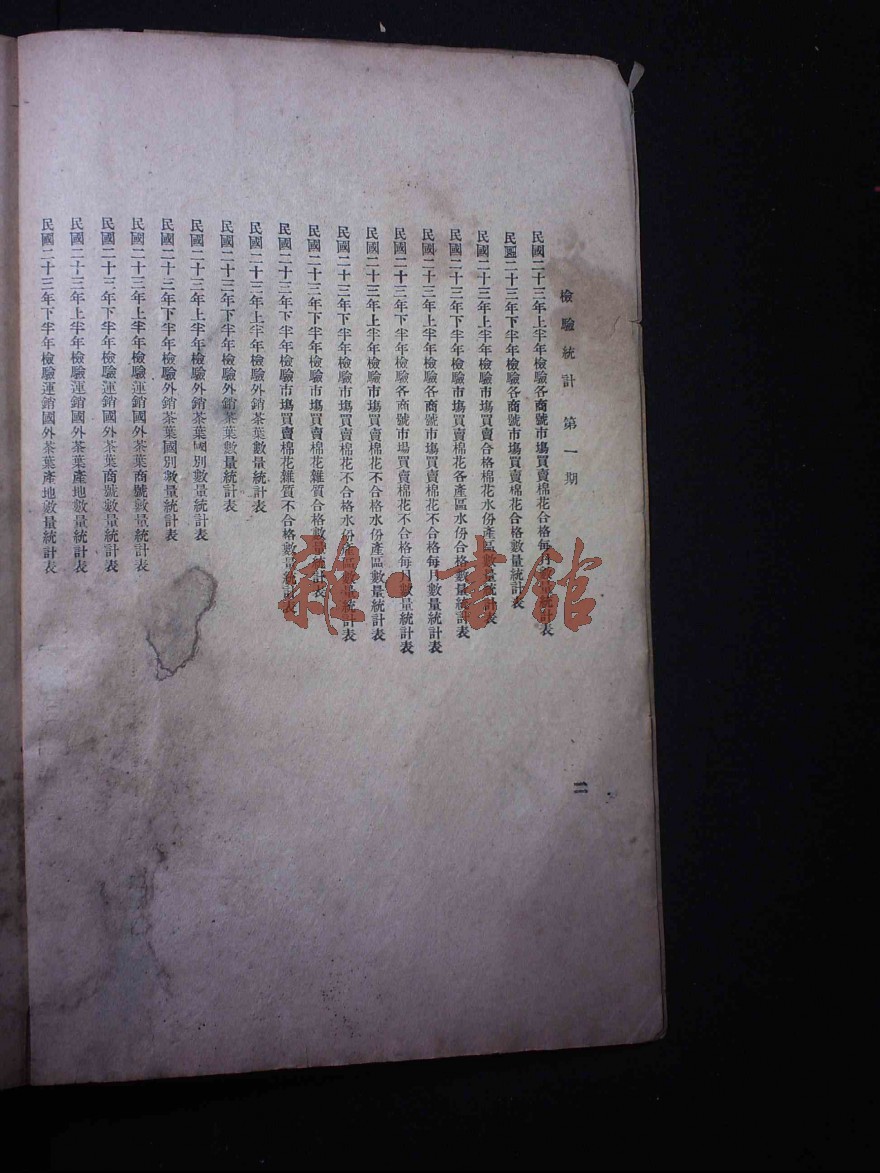 檢驗統計 第一期
二
民國二十三年上半年檢驗各商號市場買賣棉花合格每月數量統計表
民國二十三年下半年檢驗各商號市塲買賣棉花合格數量統計表
民國二十三年上半年檢驗市塲買賣合格棉花水份產區數量統計表
民國二十三年下半年檢驗市塲買賣棉花各產區水份合格數量統計表
民國二十三年上半年檢驗各商號市塲買賣棉花不合格每月數量統計表
民國二十三年下半年檢驗各商號市場買賣棉花不合格每月數量統計表
民國二十三年上半年檢驗市塲買賣棉花不合格水份產區數量統計表
民國二十三年下半年檢驗市塲買賣棉花不合格水份產區數量統計表
民國二十三年上半年檢驗市塲買賣棉花雜質合格數量統計表
民國二十三年下半年檢驗市塲買賣棉花雜質不合格數量統計表
民國二十三年上半年檢驗外銷茶葉數量統計表
民國二十三年下半年檢驗外銷茶葉數量統計表
民國二十三年上半年檢驗外銷茶葉國別數量統計表
民國二十三年下半年檢驗外銷茶葉國別數量統計表
民國二十三年上半年檢驗運銷國外茶葉商號數量統計表
民國二十三年下半年檢驗運銷國外茶葉商號數量統計表
民國二十三年上半年檢驗運銷國外茶葉產地數量統計表
民國二十三年下半年檢驗運銷國外茶葉產地數量統計表
雜·書館